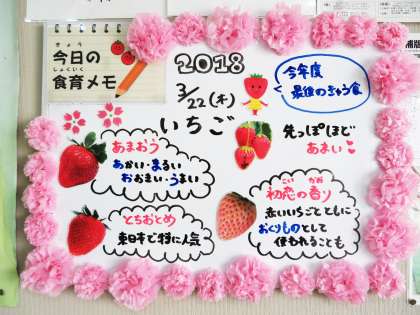 きょう
今日の
しょくいく
食育メモ
2018
3/22(木)
いちご
今年度
最後のきゅう食
先っぽほど
あまい
あまおう
あかい・まるい
おおきい・うまい
とちおとめ
東日本で特に人気
はつこい かお
初恋の香り
赤いいちごとともに
おくりものとして
使われることも